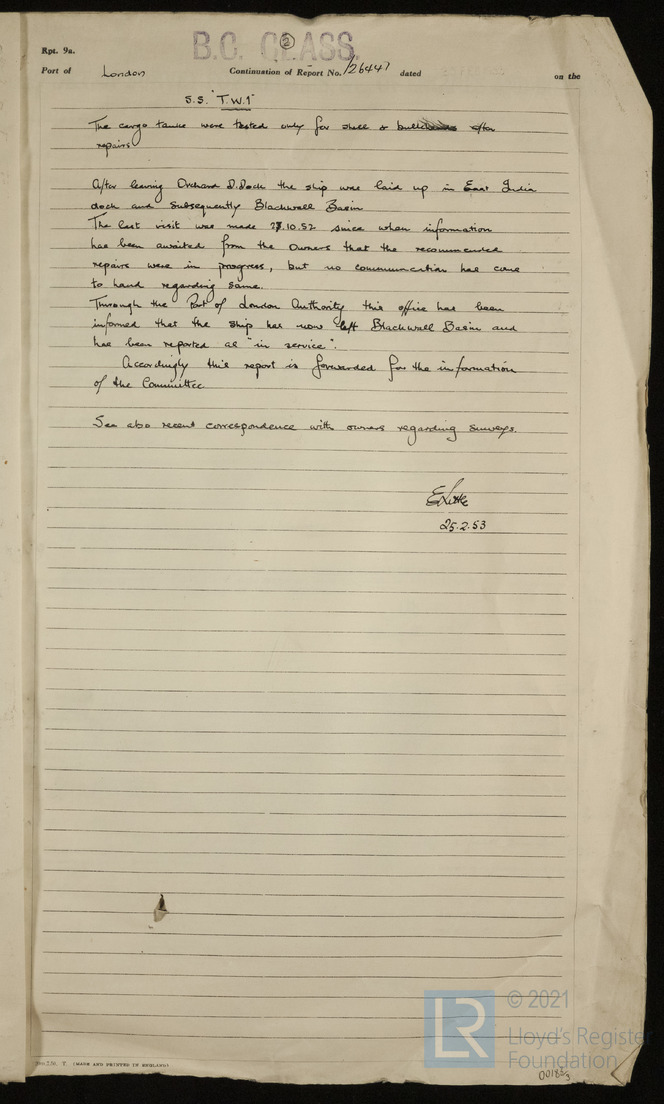 Rpt. 9a.
B.C. CLASS.
2
Port of London Continuation of Report No. 126447 dated on the
S.S. "T.W.1"
The cargo tanks were tested only for shell & after
repairs
After leaving Orchard D. Dock the ship was laid up in East India
dock and subsequently Blackwall Basin
The last visit was made 27.10.52 since when information
has been awaited from the Owners that the recommended
repairs were in progress, but no communication has come
to hand regarding same.
Through the Port of London Authority this office has been
informed that the ship has now left Blackwall Basin and
has been reported as "in service".
Accordingly this report is forwarded for the information
of the Committee
See also recent correspondence with owners regarding surveys.
25.2.53
T. (MADE AND PRINTED IN ENGLAND)
LR
© 2021
Lloyd's Register
Foundation